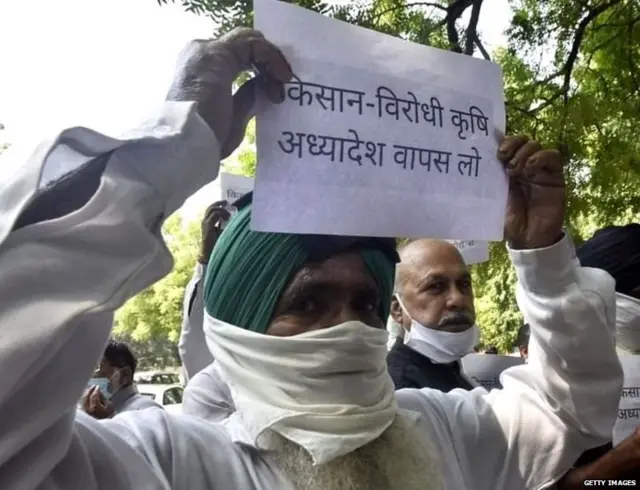 किसान-विरोधी कृषि
अध्यादेश वापस लो
GETTY IMAGES